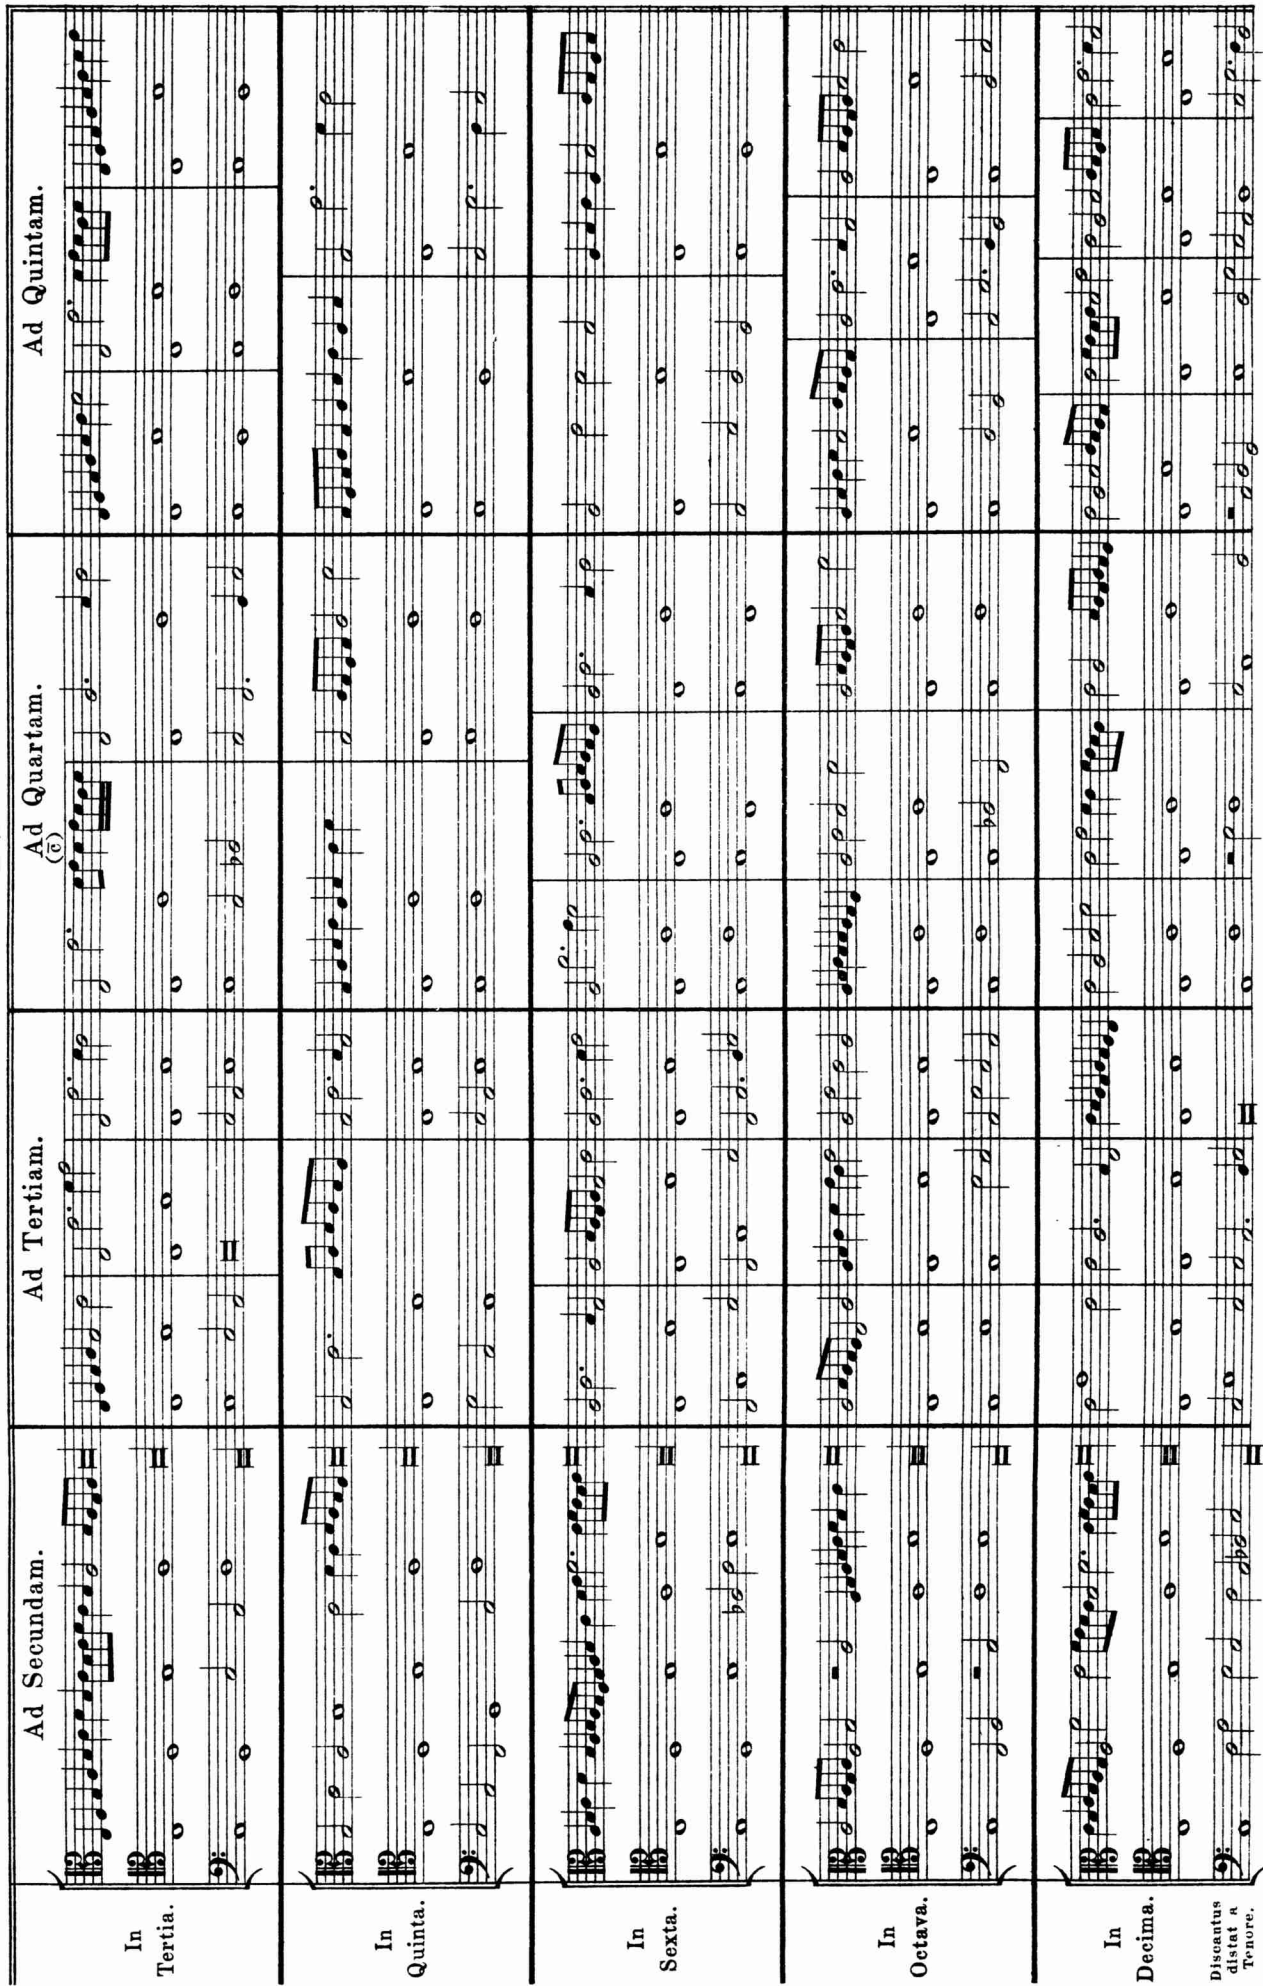 Ad Secundam.
Ad Tertiam.
Ad Quartam.
(c̄)
Ad Quintam.
In
Tertia.
In
Quinta.
In
Sexta.
In
Octava.
In
Decima.
Discantus
distat a
Tenore.